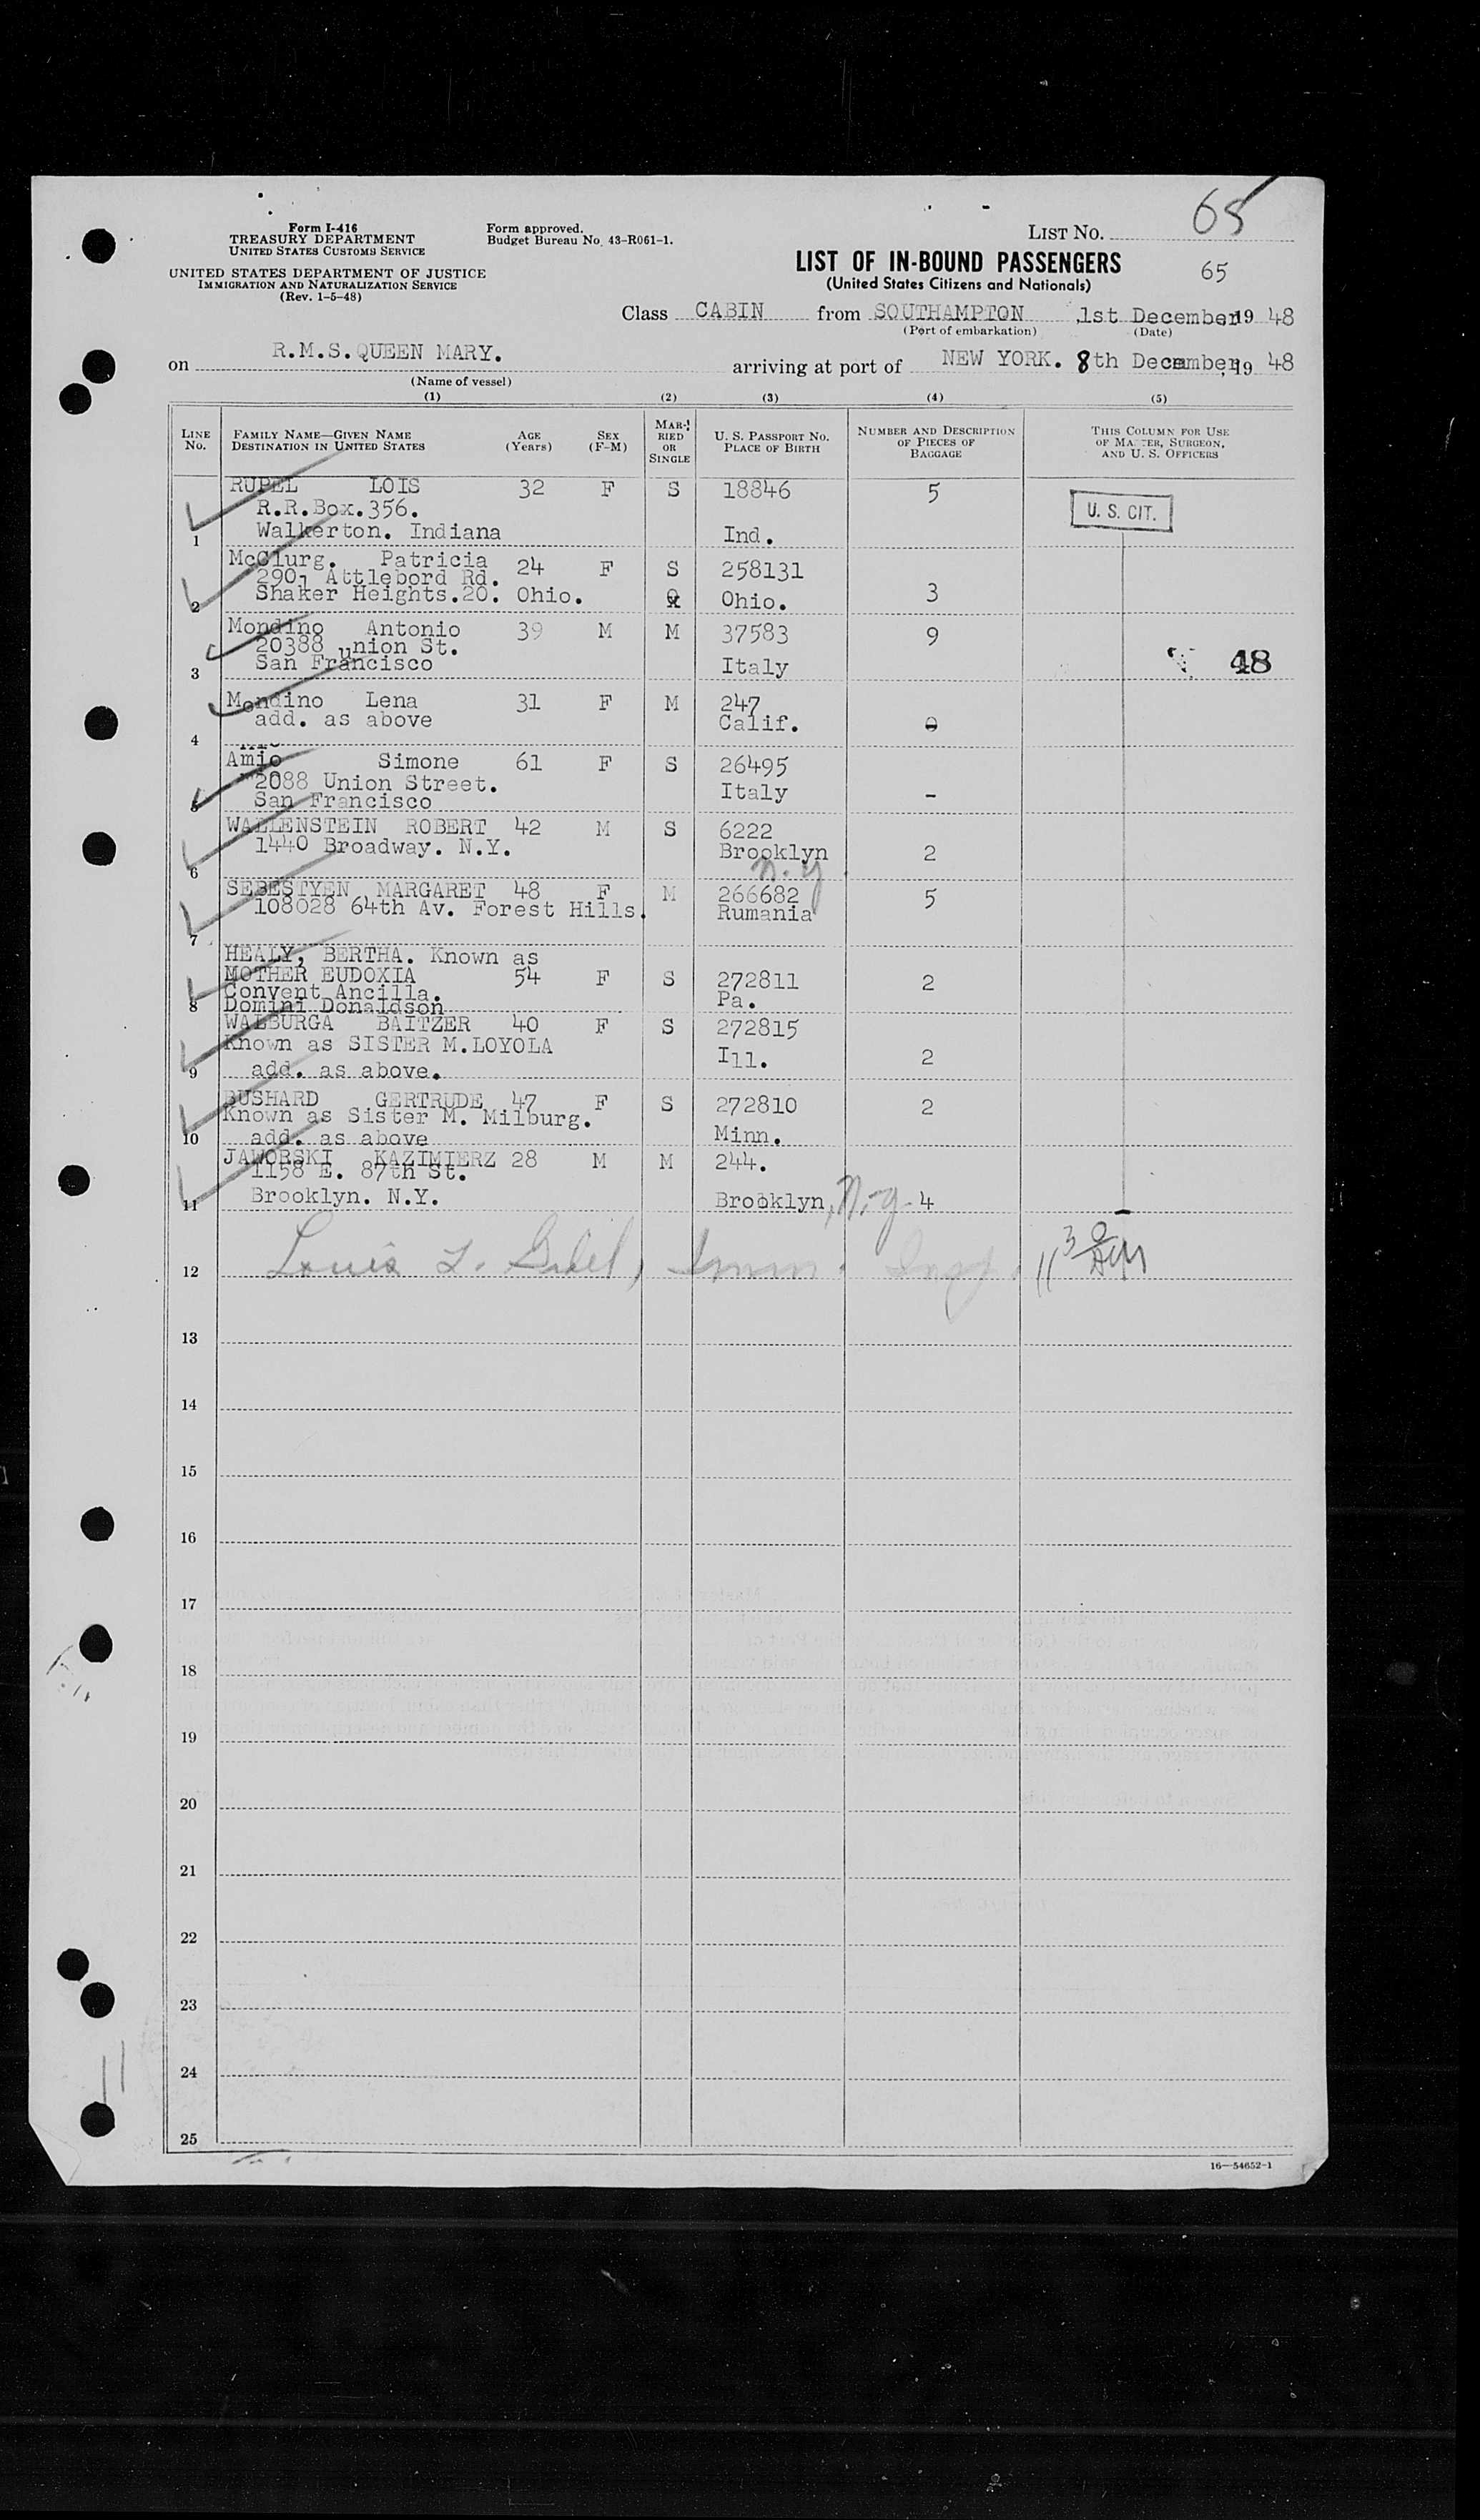 65
Form I-416
TREASURY DEPARTMENT
UNITED STATES CUSTOMS SERVICE
Form approved.
Budget Bureau No. 43-R061-1.
LIST NO.
UNITED STATES DEPARTMENT OF JUSTICE
IMMIGRATION AND NATURALIZATION SERVICE
(Rev. 1-5-48)
LIST OF IN-BOUND PASSENGERS
(United States Citizens and Nationals)
65
Class CABIN from SOUTHAMPTON ,1st December 19 48
(Port of embarkation) (Date)
on R.M.S.QUEEN MARY. arriving at port of NEW YORK. 8th December, 19 48
(Name of vessel)
(1) (2) (3) (4) (5)
LINE No. FAMILY NAME—GIVEN NAME DESTINATION IN UNITED STATES AGE (Years) SEX (F-M) MARRIED OR SINGLE U. S. PASSPORT NO. PLACE OF BIRTH NUMBER AND DESCRIPTION OF PIECES OF BAGGAGE THIS COLUMN FOR USE OF MASTER, SURGEON, AND U. S. OFFICERS
RUPEL LOIS 32 F S 18846 5
R.R.Box.356. U. S. CIT.
1 Walkerton. Indiana Ind.
McClurg. Patricia 24 F S 258131
2907 Attlebord Rd.
2 Shaker Heights.20. Ohio. Ohio. 3
Mondino Antonio 39 M M 37583 9
20388 union St.
3 San Francisco Italy 48
Mondino Lena 31 F M 247
add. as above Calif. 0
4
Amio Simone 61 F S 26495
2088 Union Street. Italy
5 San Francisco -
WALLENSTEIN ROBERT 42 M S 6222
1440 Broadway. N.Y. Brooklyn 2
6 N.Y.
SEBESTYEN MARGARET 48 F M 266682 5
108028 64th Av. Forest Hills. Rumania
7
HEALY, BERTHA. Known as
MOTHER EUDOXIA 54 F S 272811 2
Convent Ancilla. Pa.
8 Domini Donaldson
WALBURGA BAITZER 40 F S 272815
Known as SISTER M.LOYOLA Ill. 2
9 add. as above.
BUSHARD GERTRUDE 47 F S 272810 2
Known as Sister M. Milburg.
10 add. as above Minn.
JAWORSKI KAZIMIERZ 28 M M 244.
1158 E. 87th St.
11 Brooklyn. N.Y. Brooklyn, N.Y. 4
12 Louis L. Imm. Insp.
13
14
15
16
17
18
19
20
21
22
23
24
25
11
16—54652-1